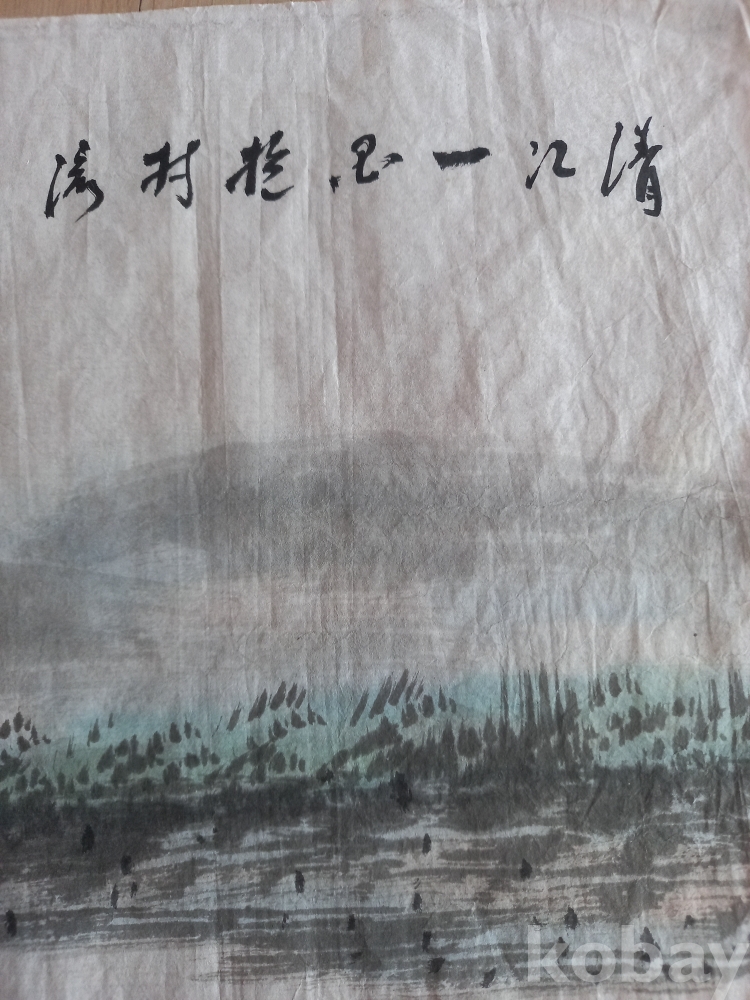 清江一曲抱村流
kobay